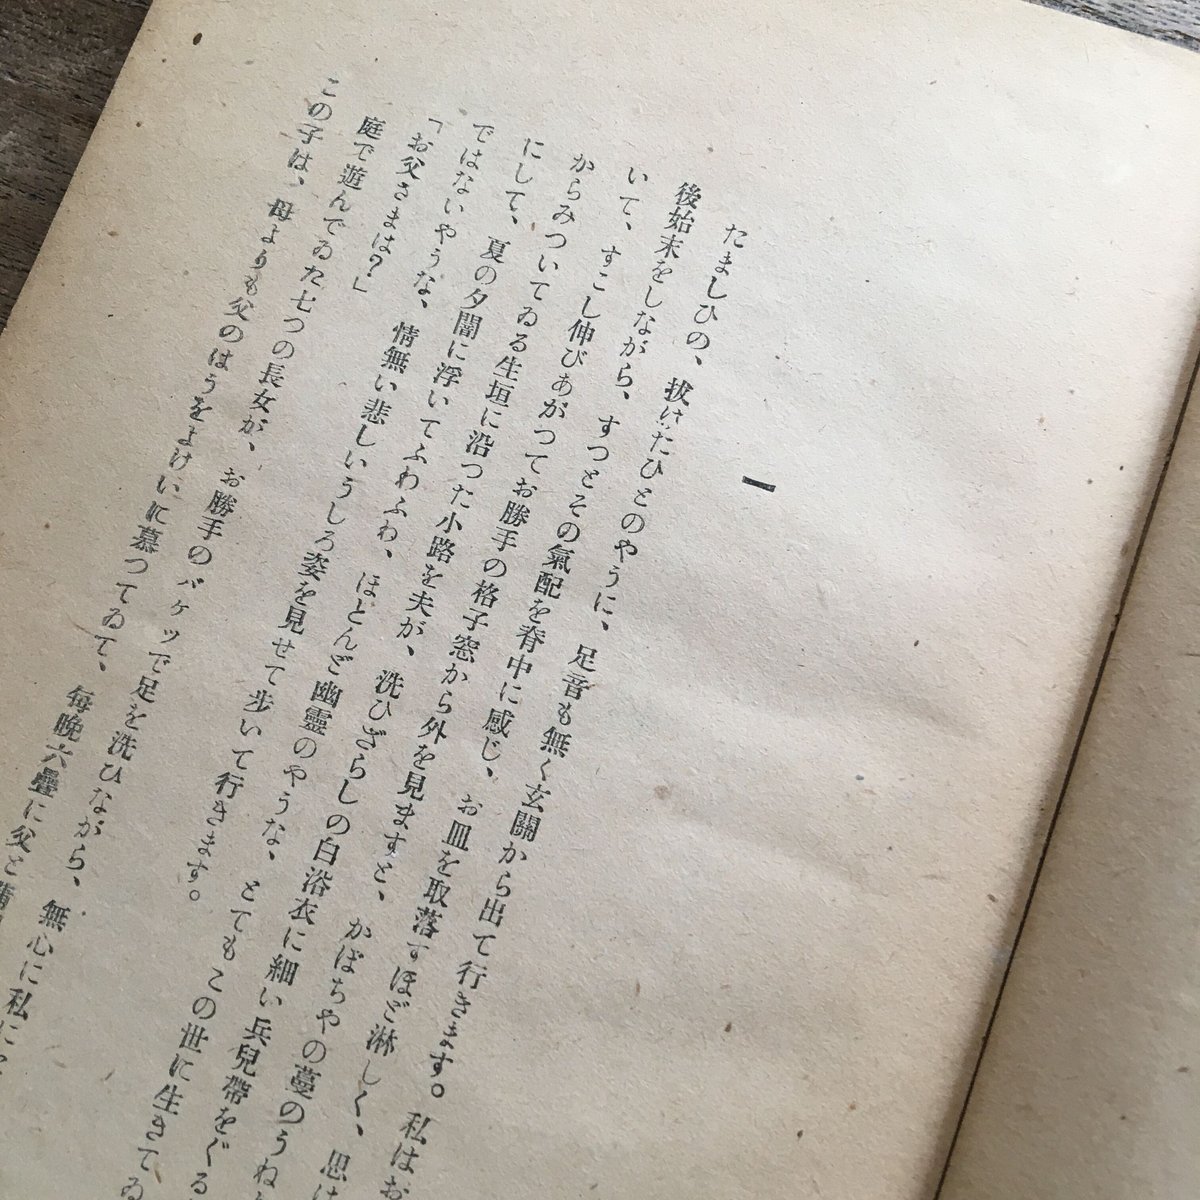 一
たましひの、拔けたひとのやうに、足音も無く玄關から出て行きます。私はお
後始末をしながら、すつとその氣配を脊中に感じ、お皿を取落すほど淋しく、思は
いて、すこし伸びあがつてお勝手の格子窓から外を見ますと、かぼちやの蔓のうねり
からみついてゐる生垣に沿つた小路を夫が、洗ひざらしの白浴衣に細い兵兒帶をぐる
にして、夏の夕闇に浮いてふわふわ、ほとんど幽靈のやうな、とてもこの世に生きてゐ
ではないやうな、情無い悲しいうしろ姿を見せて歩いて行きます。
「お父さまは?」
庭で遊んでゐた七つの長女が、お勝手のバケツで足を洗ひながら、無心に私に
この子は、母よりも父のはうをよけいに慕つてゐて、毎晩六疊に父と